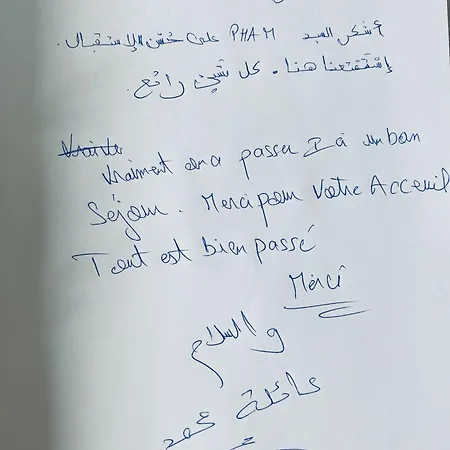 أشكر السيد PHAM على حسن الإستقبال.
إستمتعنا هنا. كل شيئ رائع.
Vraiment on a passer I à un bon
Séjour. Merci pour Votre Acceuil
Tout est bien passé
Merci
والسلام
عائلة محمد